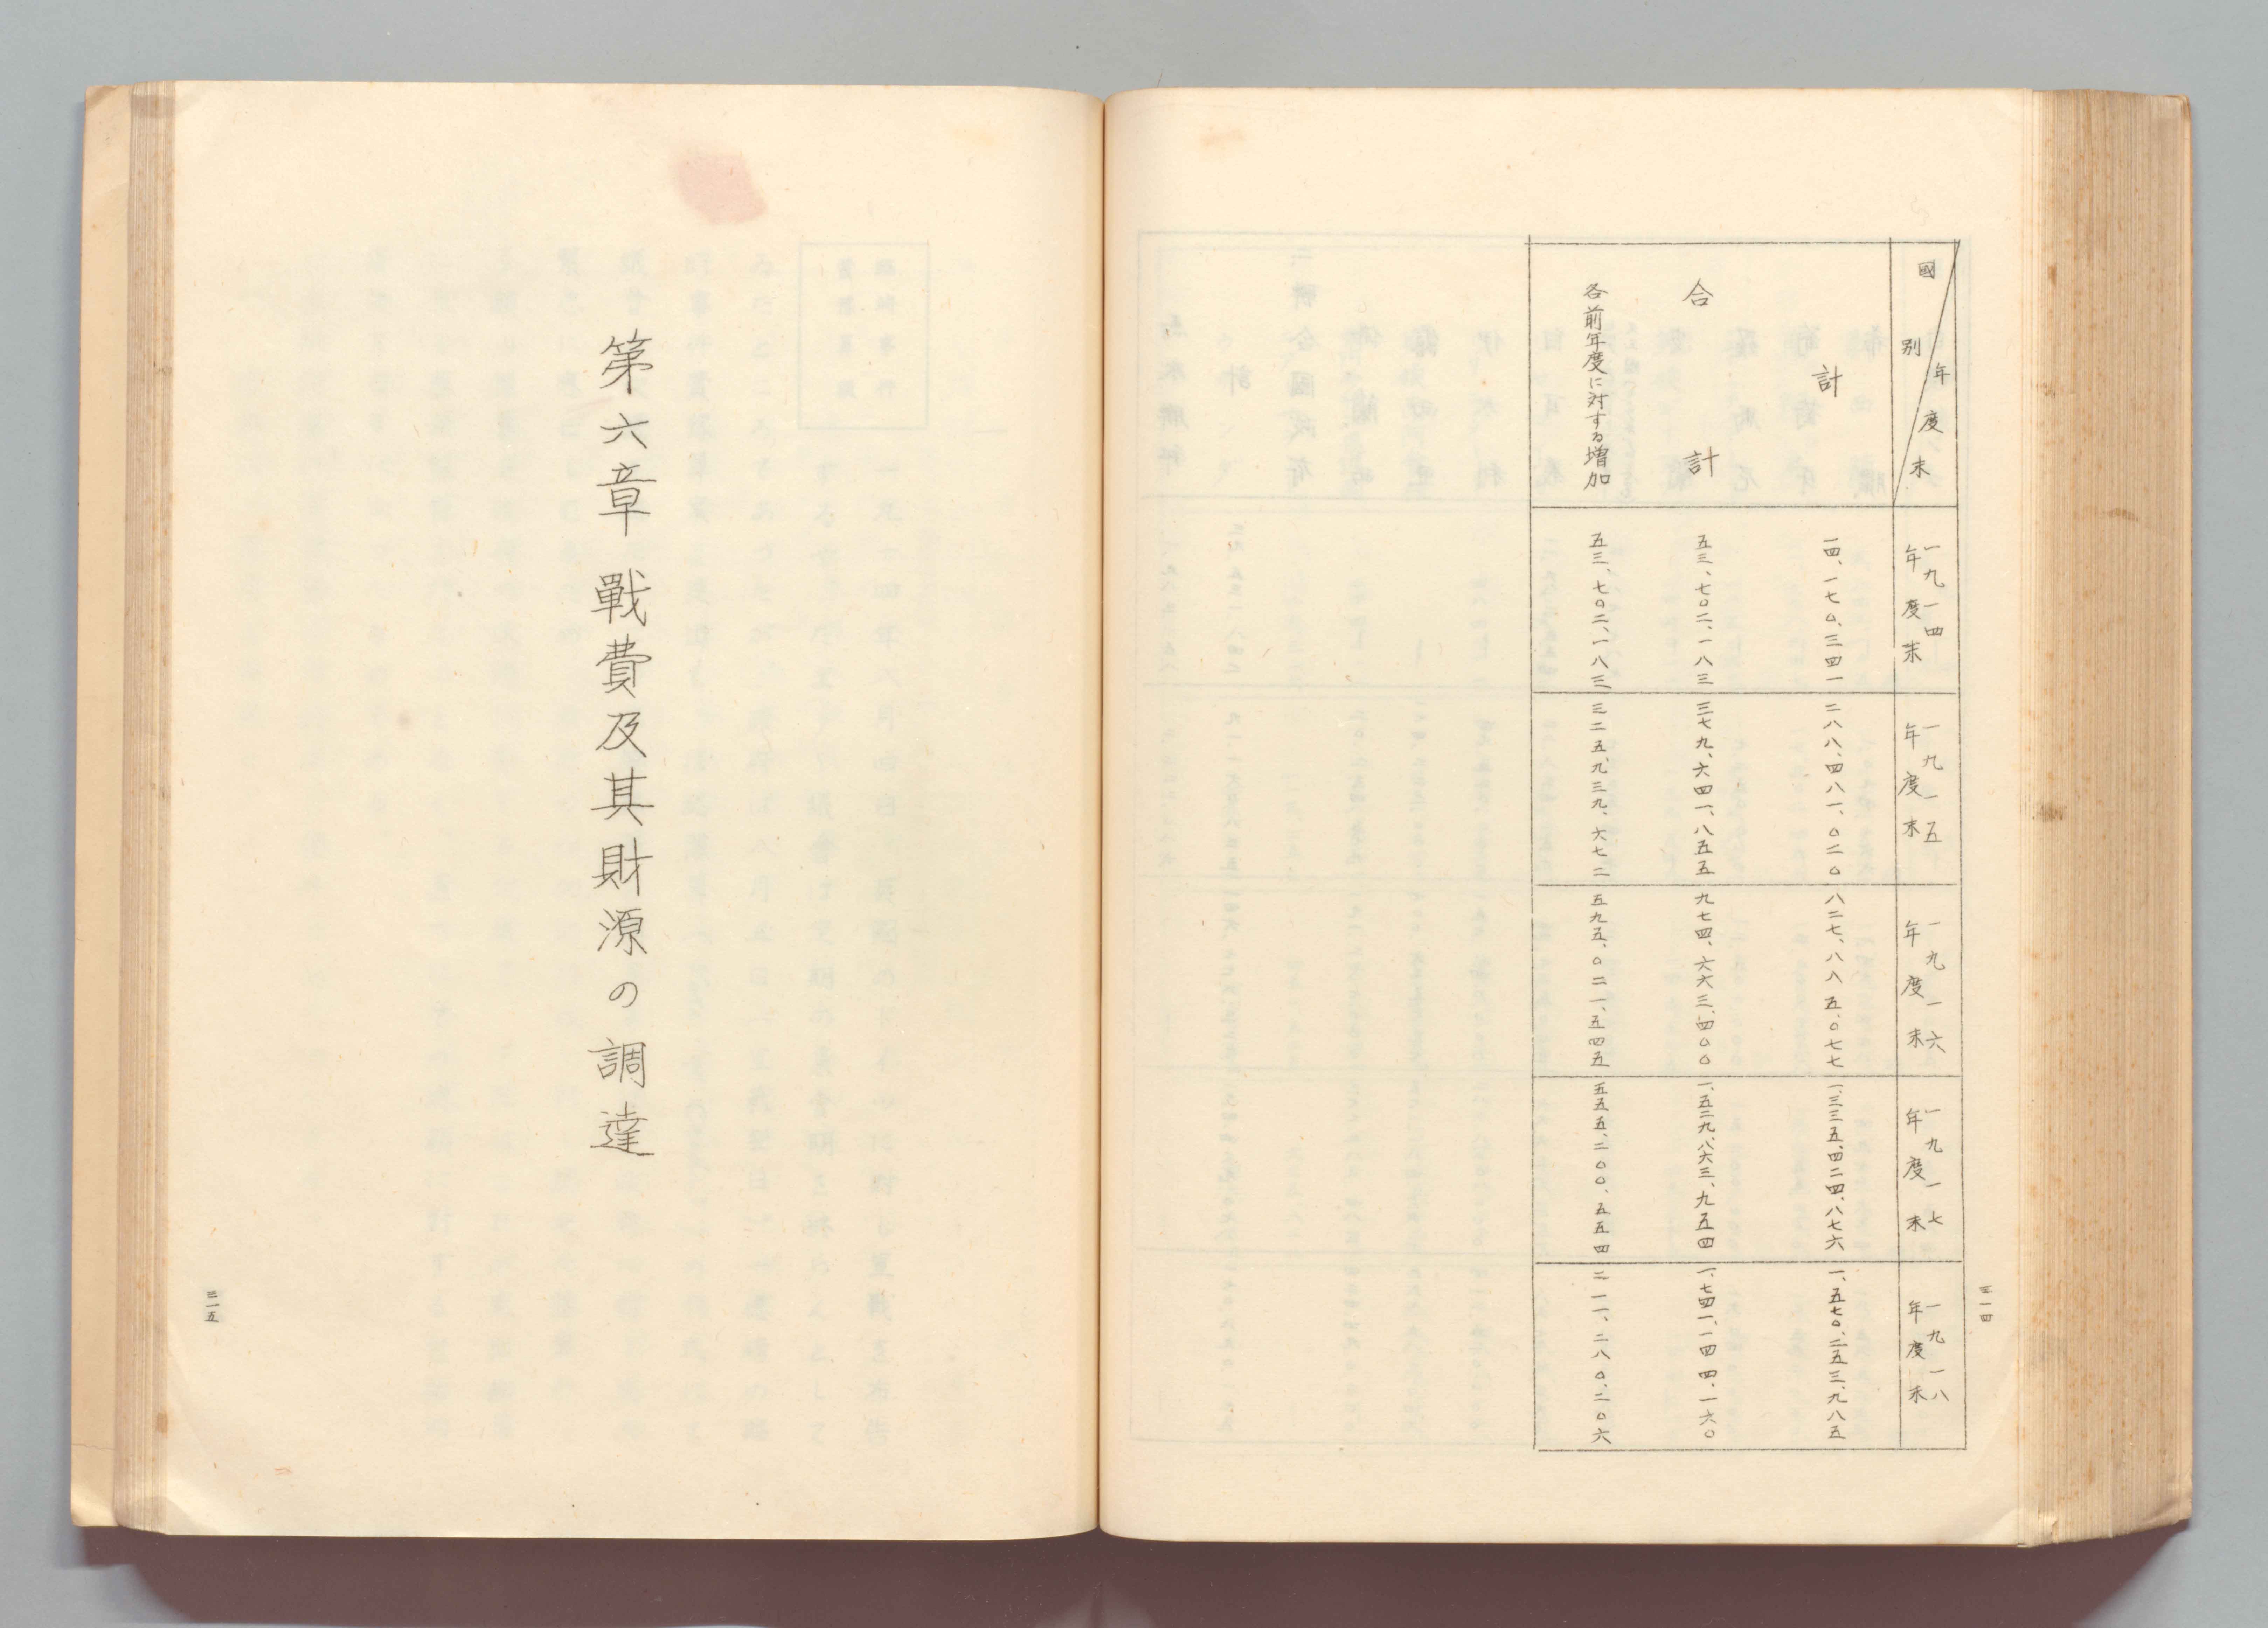 三一四
國別
年度末
一九一四年度末
一九一五年度末
一九一六年度末
一九一七年度末
一九一八年度末
計
一四、一七〇、三四一
二八八、四八一、〇二〇
八二七、八八五、〇七七
一、三三五、四二四、八七六
一、五七〇、二五三、九八五
合計
五三、七〇二、一八三
三七九、六四一、八五五
九七四、六六三、四〇〇
一、五二九、八六三、九五四
一、七四一、一四四、一六〇
各前年度に対する増加
五三、七〇二、一八三
三二五、九三九、六七二
五九五、〇二一、五四五
五五五、二〇〇、五五四
二一一、二八〇、二〇六
第六章 戰費及其財源の調達
三一五